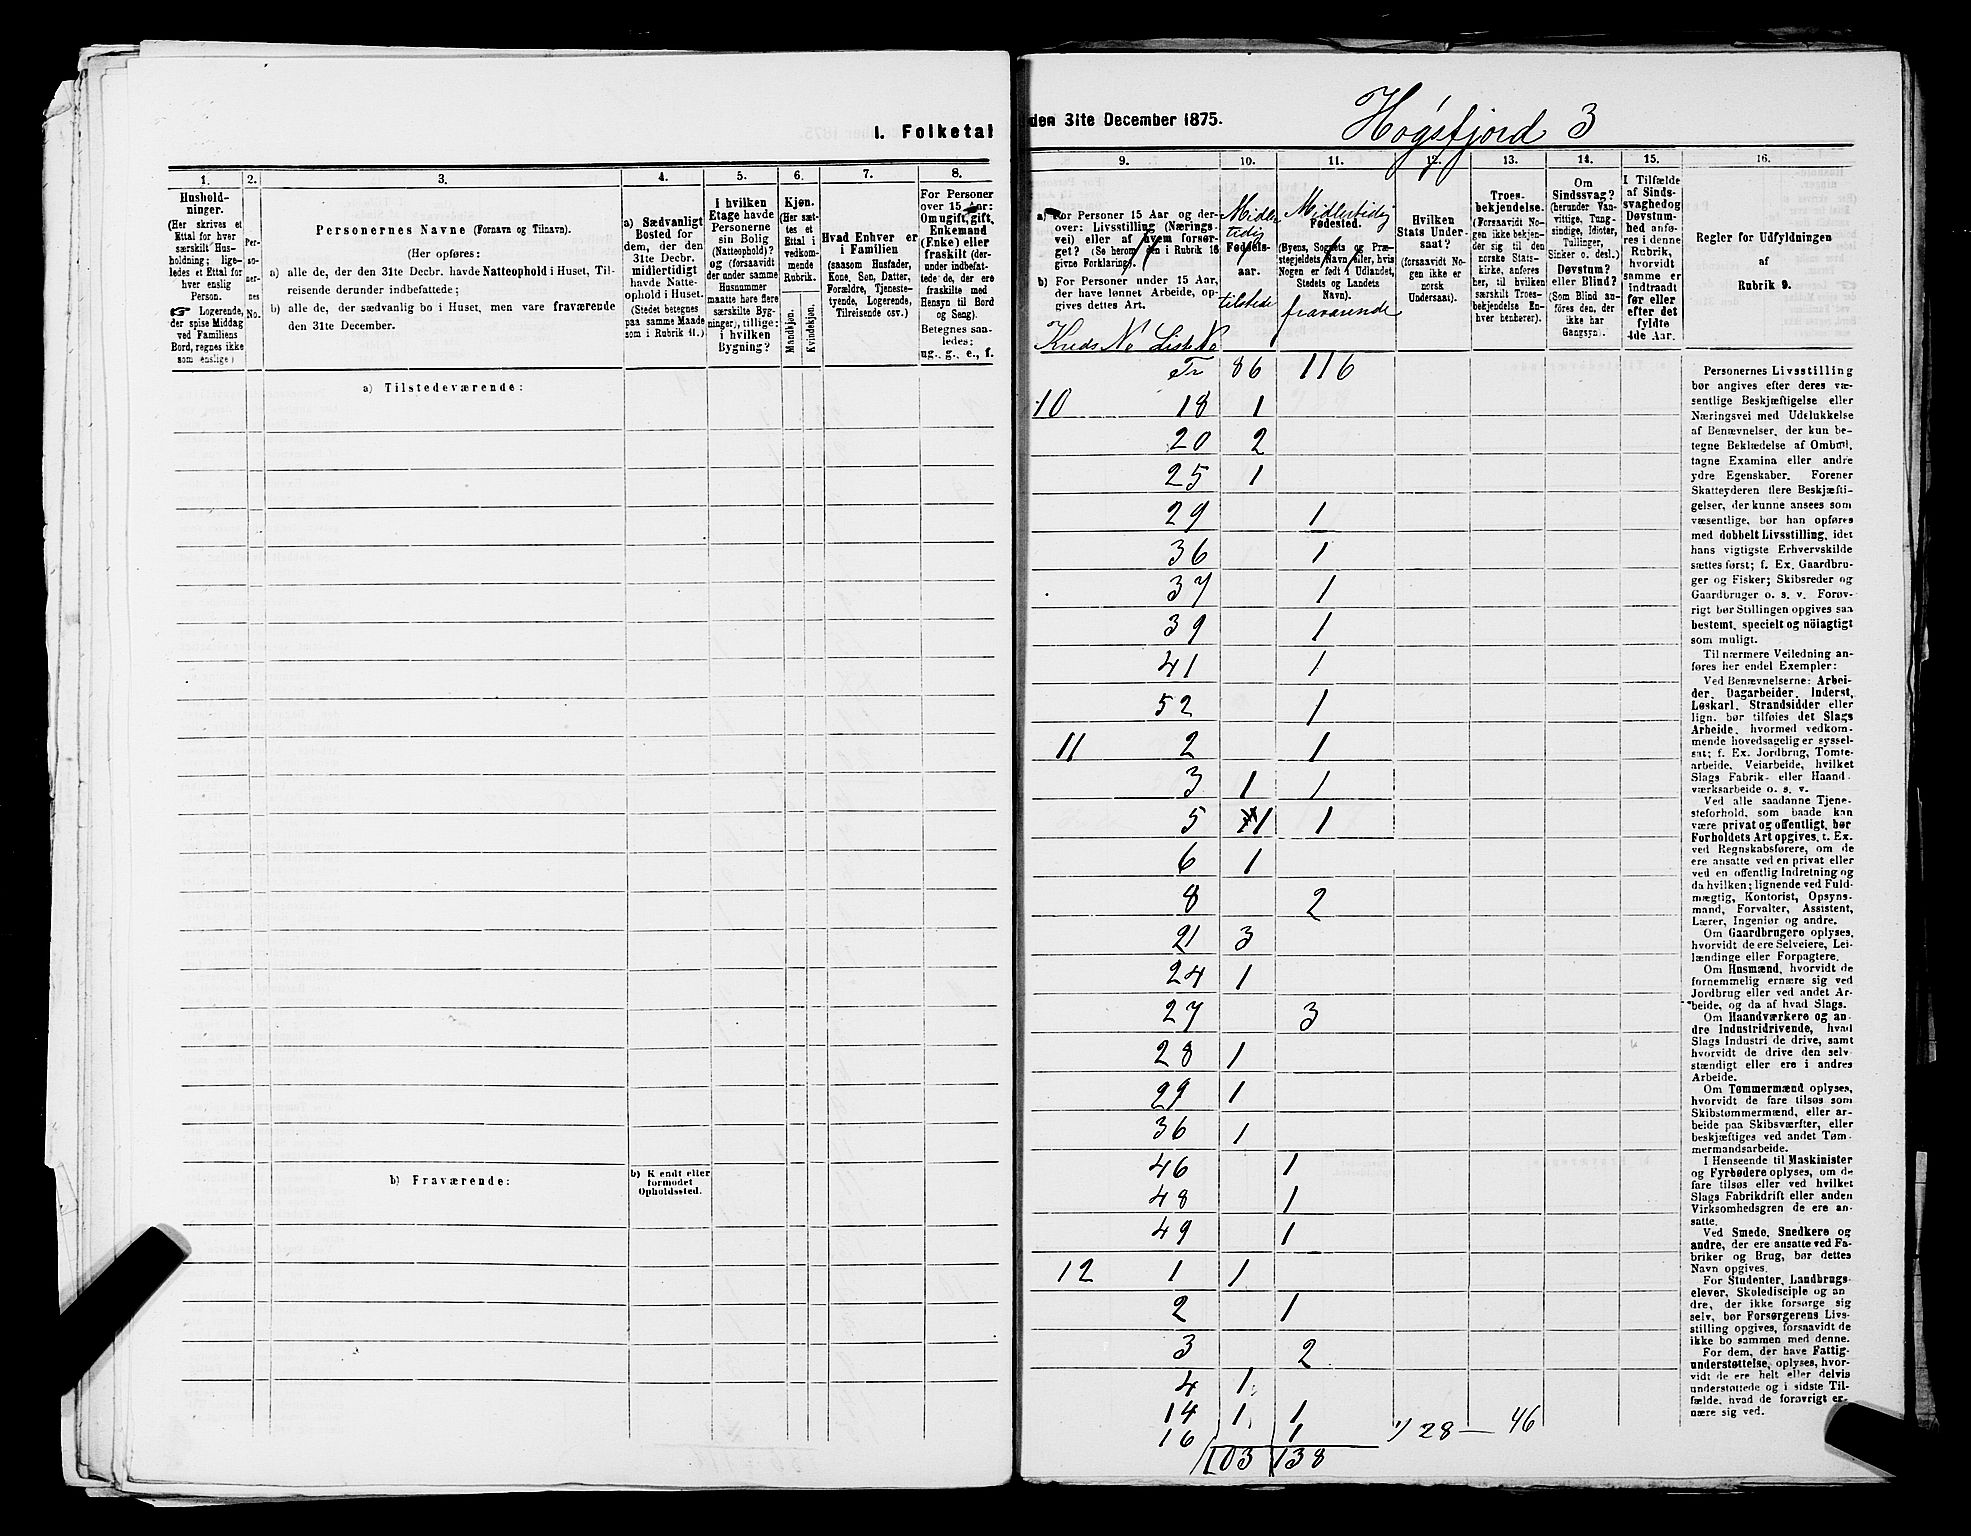 I. Folketal
1.
Hushold-
ninger.
(Her skrives et
Ettal for hver
særskilt Hus-
holdning; lige-
ledes et Ettal for
hver enslig
Person.
☞ Logerende,
der spise Middag
ved Familiens
Bord, regnes ikke
som enslige)
2.
Per-
so-
ner-
nes
No.
3.
Personernes Navne (Fornavn og Tilnavn).
(Her opføres:
a) alle de, der den 31te Decbr. havde Natteophold i Huset, Til-
reisende derunder indbefattede;
b) alle de, der sædvanlig bo i Huset, men vare fraværende
den 31te December.
4.
a) Sædvanligt
Bosted for
dem, der den
31te Decbr.
midlertidigt
havde Natte-
ophold i Huset.
(Stedet betegnes
paa samme Maade
som i Rubrik 11.)
5.
I hvilken
Etage havde
Personerne
sin Bolig
(Natteophold)?
og (forsaavidt
der under samme
Husnummer
maatte høre flere
særskilte Byg-
ninger), tillige:
i hvilken
Bygning?
6.
Kjøn.
(Her sæt-
tes et
Ettal i
vedkom-
mende
Rubrik.
Mandkjøn.
Kvindekjøn.
7.
Hvad Enhver er
i Familien
(saasom Husfader,
Kone, Søn, Datter,
Forældre, Tjeneste-
tyende, Logerende,
Tilreisende osv.)
8.
For Personer
over 15 Aar:
Om ugift, gift,
Enkemand
(Enke) eller
fraskilt (der-
under indbefat-
tede de, der ere
fraskilte med
Hensyn til Bord
og Seng).
Betegnes saa-
ledes:
ug., g., e., f.
a) Tilstedeværende:
b) Fraværende:
b) Kjendt eller
formodet
Opholdssted.
den 31te December 1875.
Høgsfjord 3
9.
a) For Personer 15 Aar og der-
over: Livsstilling (Nærings-
vei) eller af hvem forsør-
get? (Se herom den i Rubrik 16
givne Forklaring).
b) For Personer under 15 Aar,
der have lønnet Arbeide, op-
gives dettes Art.
Kreds No Liste No
10.
Midler
tidig
Fødsels-
aar.
tilstede
11.
Midlertidig
Fødested.
(Byens, Sognets og Præ-
stegjeldets Navn eller, hvis
Nogen er født i Udlandet,
Stedets og Landets
Navn).
fraværende
12.
Hvilken
Stats Under-
saat?
(forsaavidt No-
gen ikke er
norsk
Undersaat).
13.
Troes-
bekjendelse.
(Forsaavidt No-
gen ikke bekjen-
der sig til den
norske Stats-
kirke, anføres
her, til hvilken
særskilt Troes-
bekjendelse En-
hver henhører).
14.
Om
Sindssvag?
(herunder Van-
vittige, Tung-
sindige, Idioter,
Tullinger,
Sinker o. desl.)
Døvstum?
eller Blind?
(Som Blind an-
føres den, der
ikke har
Gangsyn).
15.
I Tilfælde
af Sinds-
svaghed og
Døvstum-
hed anfø-
res i denne
Rubrik,
hvorvidt
samme er
indtraadt
før eller
efter det
fyldte
4de Aar.
16.
Regler for Udfyldningen
af
Rubrik 9.
Tr 86 116
10 18 1
20 2
25 1
29 1
36 1
37 1
39 1
41 1
52 1
11 2 1
3 1 1
5 1 1
6 1
8 2
21 3
24 1
27 3
28 1
29 1
36 1
46 1
48 1
49 1
12 1 1
2 1
3 2
4 1
14 1 1
16 1
28 — 46
103 138
Personernes Livsstilling
bør angives efter deres væ-
sentlige Beskjæftigelse eller
Næringsvei med Udelukkelse
af Benævnelser, der kun be-
tegne Beklædelse af Ombud,
tagne Examina eller andre
ydre Egenskaber. Forener
Skatteyderen flere Beskjæfti-
gelser, der kunne ansees som
væsentlige, bør han opføres
med dobbelt Livsstilling, idet
hans vigtigste Erhvervskilde
sættes først; f. Ex. Gaardbru-
ger og Fisker; Skibsreder og
Gaardbruger o. s. v. Forøv-
rigt bør Stillingen opgives saa
bestemt, specielt og nöiagtigt
som muligt.
Til nærmere Veiledning an-
føres her endel Exempler:
Ved Benævnelserne: Arbei-
der, Dagarbeider, Inderst,
Løskarl, Strandsidder eller
lign. bør tilføies det Slags
Arbeide, hvormed vedkom-
mende hovedsagelig er syssel-
sat; f. Ex. Jordbrug, Tomte-
arbeide, Veiarbeide, hvilket
Slags Fabrik- eller Haand-
værksarbeide o. s. v.
Ved alle saadanne Tjene-
steforhold, som baade kan
være privat og offentligt, bør
Forholdets Art opgives, t. Ex.
ved Regnskabsførere, om de
ere ansatte ved en privat eller
ved en offentlig Indretning og
da hvilken; lignende ved Fuld-
mægtig, Kontorist, Opsyns-
mand, Forvalter, Assistent,
Lærer, Ingeniør og andre.
Om Gaardbrugere oplyses,
hvorvidt de ere Selveiere, Lei-
lændinge eller Forpagtere.
Om Husmænd, hvorvidt de
fornemmelig ernære sig ved
Jordbrug eller ved andet Ar-
beide, og da af hvad Slags.
Om Haandværkere og an-
dre Industridrivende, hvad
Slags Industri de drive, samt
hvorvidt de drive den selv-
stændigt eller ere i andres
Arbeide.
Om Tømmermænd oplyses,
hvorvidt de fare tilsøs som
Skibstømmermænd, eller ar-
beide paa Skibsværfter, eller
beskjæftiges ved andet Tøm-
mermandsarbeide.
I Henseende til Maskinister
og Fyrbødere oplyses, om de
fare tilsøs eller ved hvilket
Slags Fabrikdrift eller anden
Virksomhedsgren de ere an-
satte.
Ved Smede, Snedkere og
andre, der ere ansatte ved Fa-
briker og Brug, bør dettes
Navn opgives.
For Studenter, Landbrugs-
elever, Skoledisciple og an-
dre, der ikke forsørge sig
selv, bør Forsørgerens Livs-
stilling opgives, forsaavidt de
ikke bo sammen med denne.
For dem, der have Fattig-
understøttelse, oplyses, hvor-
vidt de ere helt eller delvis
understøttede og i sidste Til-
fælde, hvad de forøvrigt er-
nære sig ved.